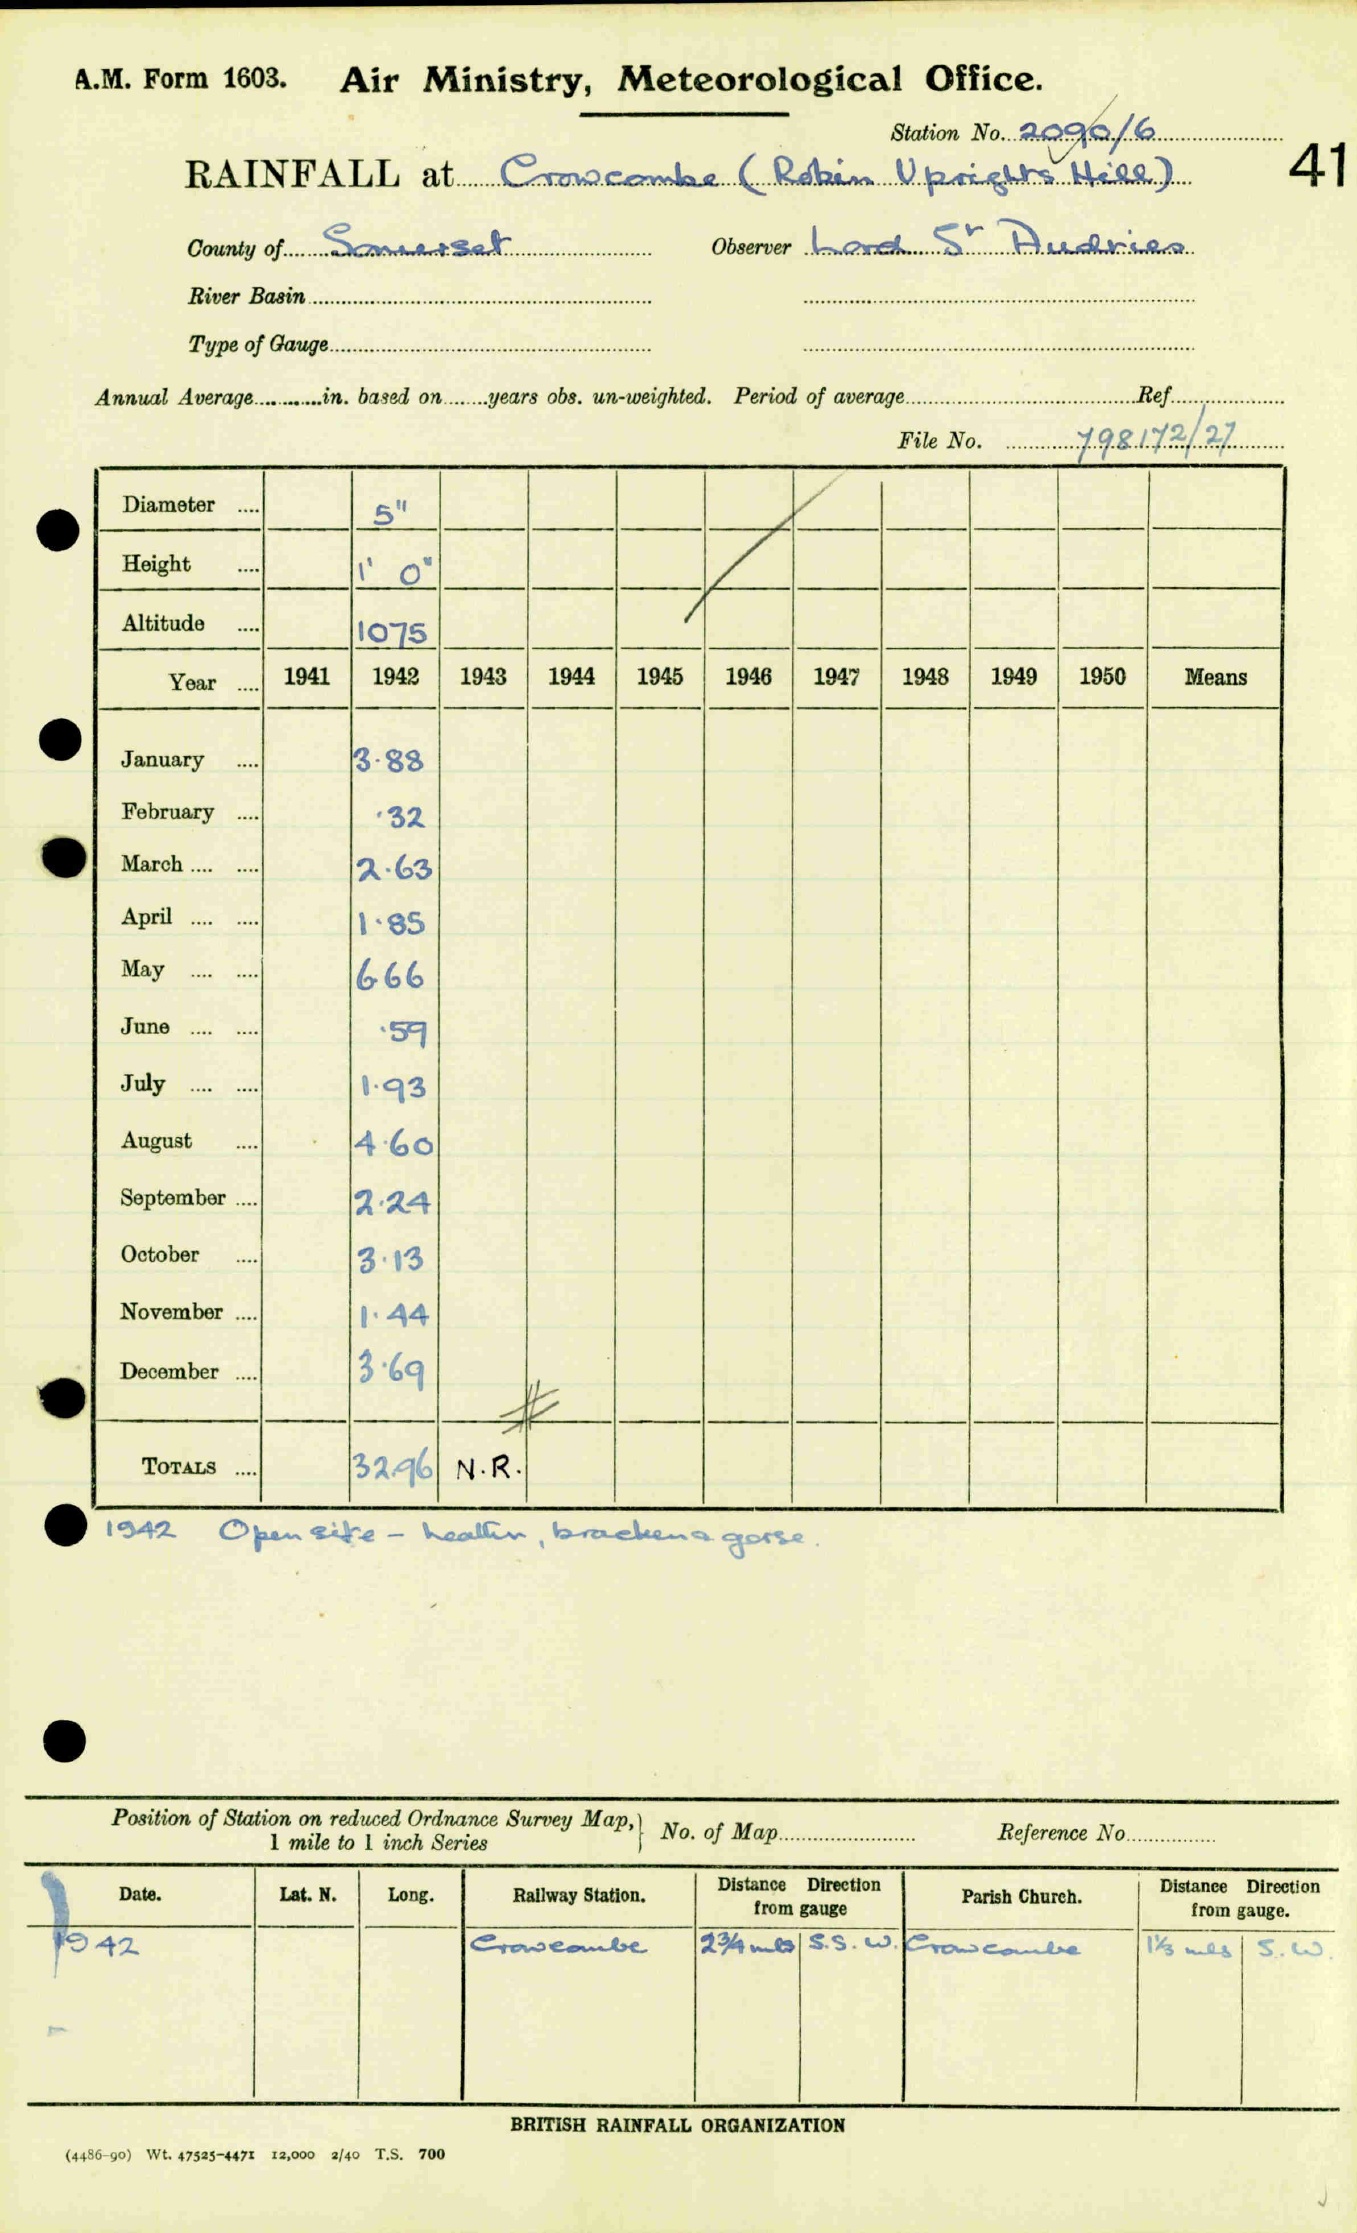 A.M. Form 1603. Air Ministry, Meteorological Office.
Station No. 2090/6
41
RAINFALL at Crowcombe (Robin Uprights Hill)
County of Somerset Observer Lord St Audries
River Basin
Type of Gauge
Annual Average in. based on years obs. un-weighted. Period of average Ref
File No. 798172/27
Diameter 5"
Height 1' 0"
Altitude 1075
Year 1941 1942 1943 1944 1945 1946 1947 1948 1949 1950 Means
January 3.88
February .32
March 2.63
April 1.85
May 6.66
June .59
July 1.93
August 4.60
September 2.24
October 3.13
November 1.44
December 3.69
TOTALS 32.96 N.R.
1942 Open site - heather, bracken & gorse.
Position of Station on reduced Ordnance Survey Map,
1 mile to 1 inch Series
No. of Map Reference No
Date. Lat. N. Long. Railway Station. Distance Direction from gauge Parish Church. Distance Direction from gauge.
1942 Crowcombe 2¾ mls S.S.W. Crowcombe 1⅓ mls S.W.
BRITISH RAINFALL ORGANIZATION
(4486-90) Wt. 47525-4471 12,000 2/40 T.S. 700